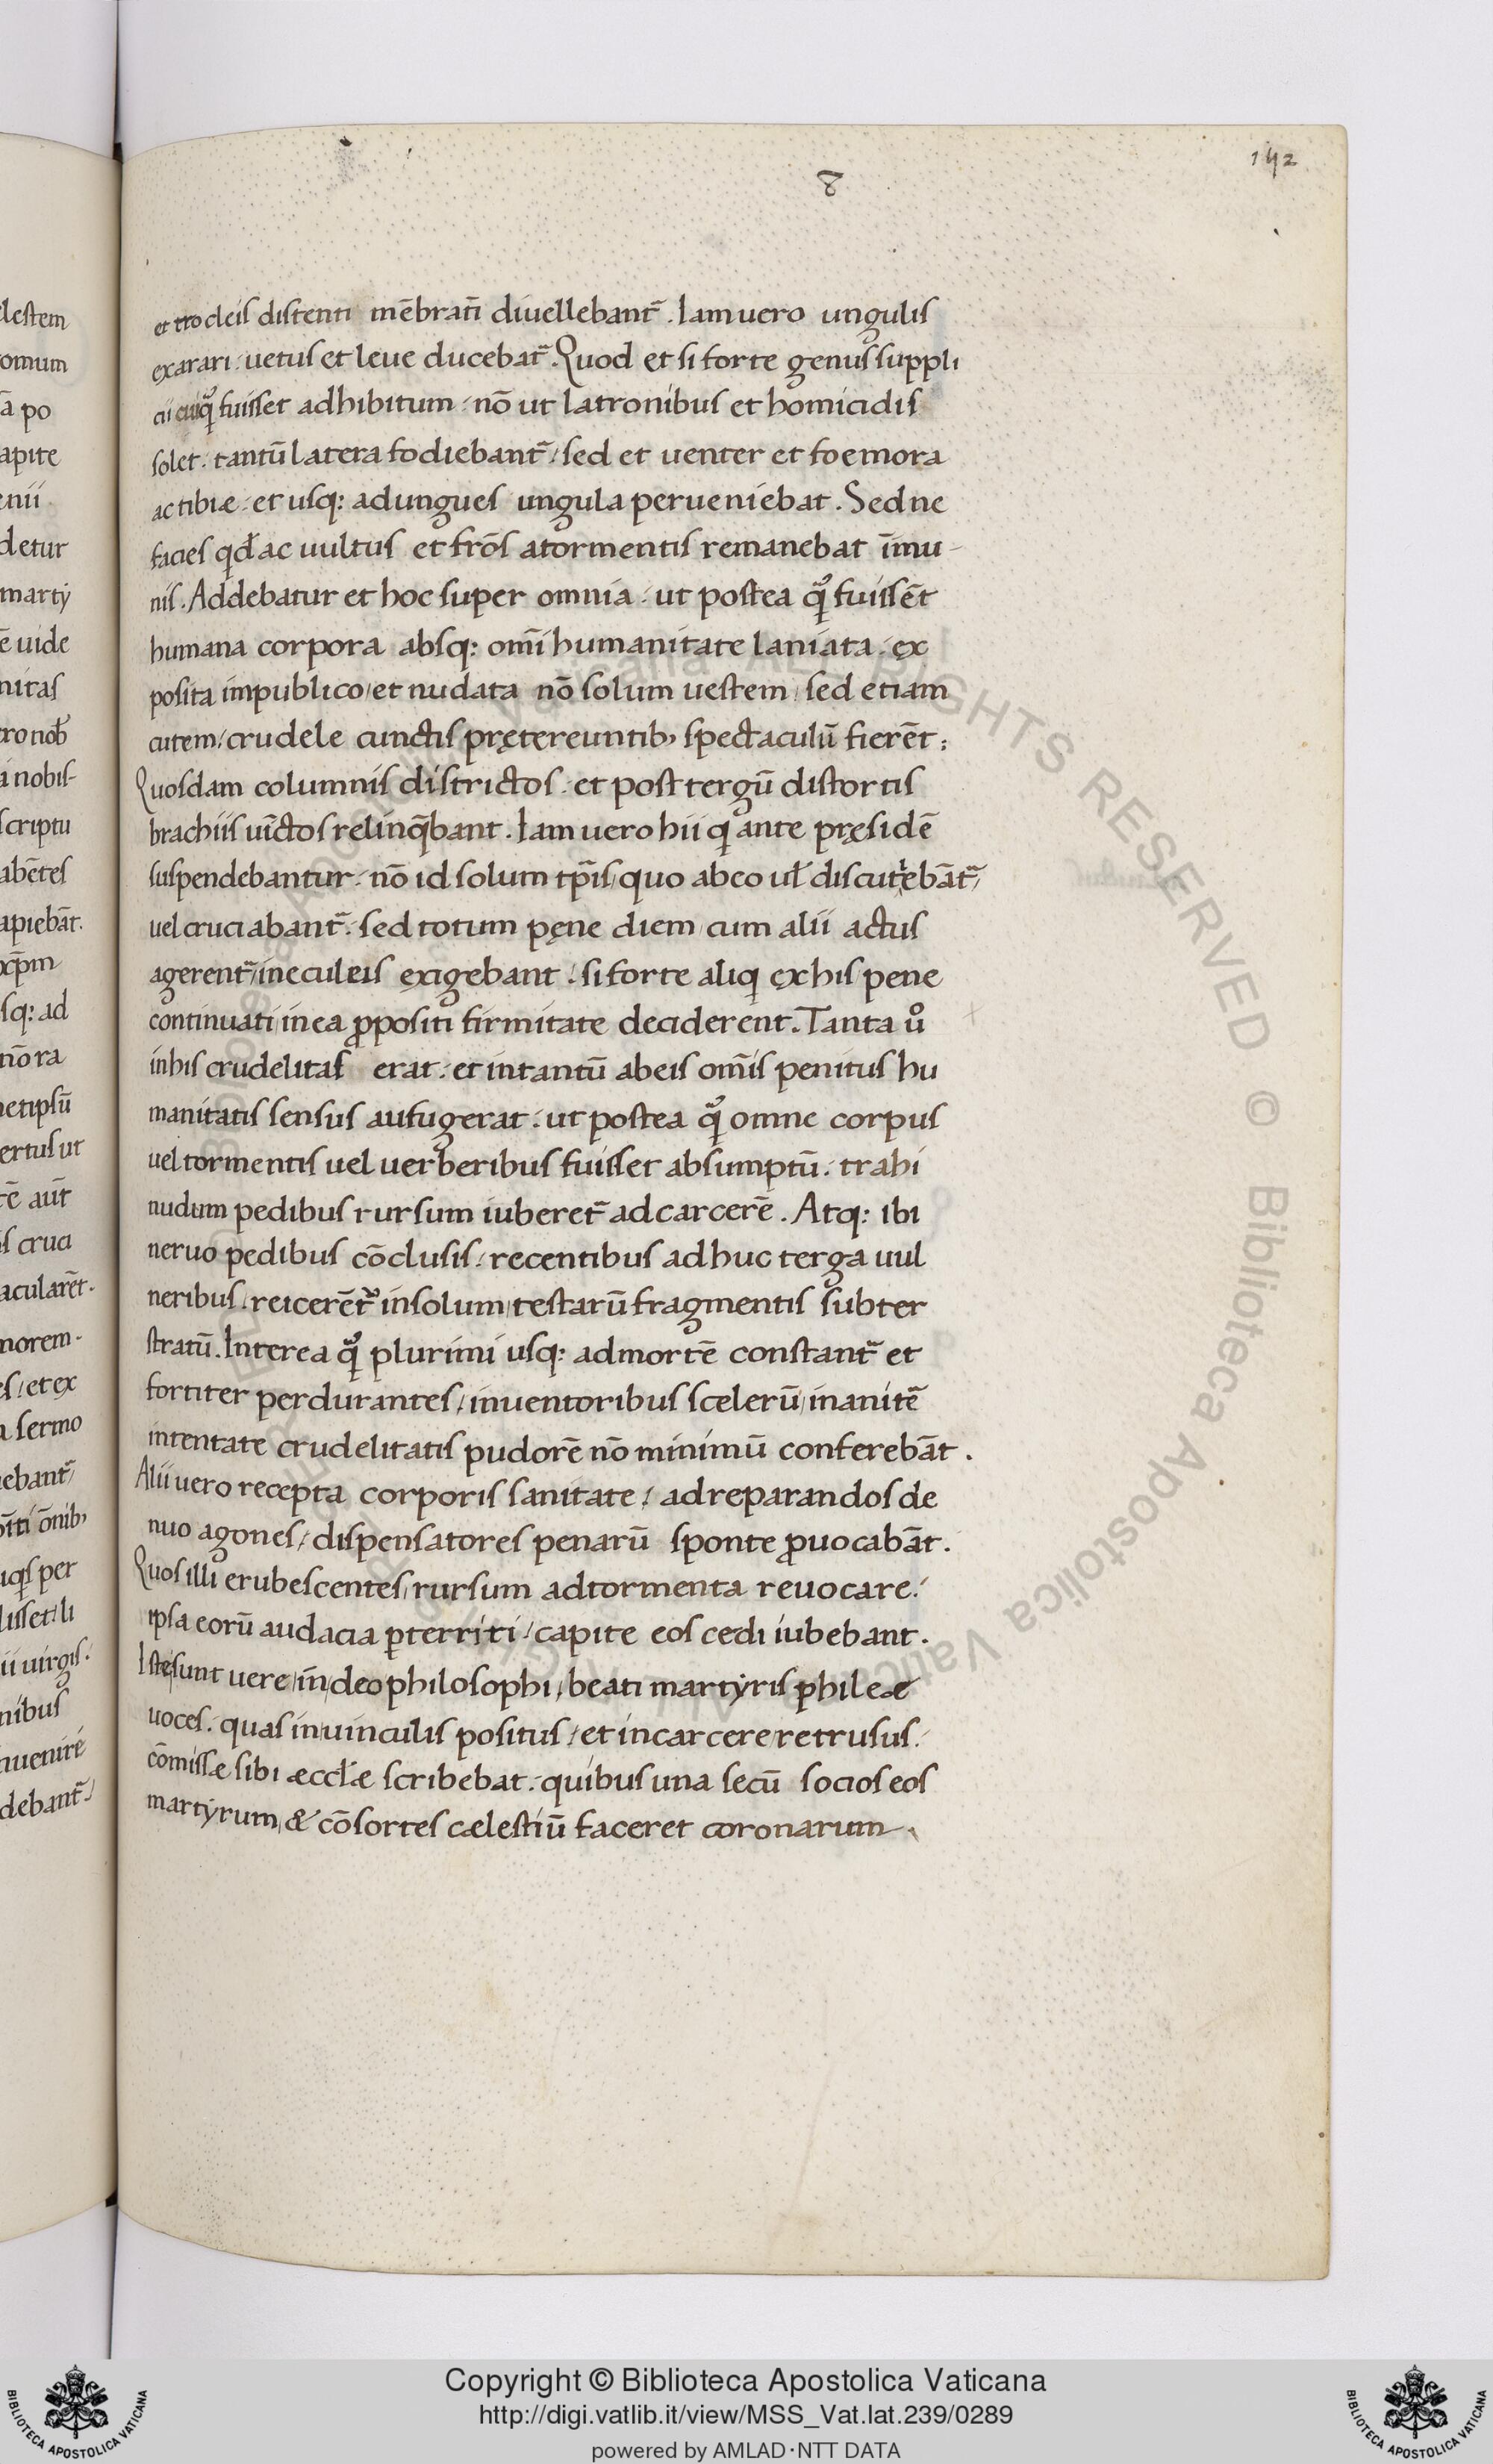 142
8
et trocleis distenti mēbrati᷑ diuellebant᷑. Iam uero ungulis
exarari. uetus et leue ducebat᷑. Quod et si forte genus suppli
cii cuiq̃ fuisset adhibitum. nō ut latronibus et homicidis
solet. tantū latera fodiebant᷑/ sed et uenter et foemora
ac tibiæ. et usq: ad ungues ungula perueniebat. Sed ne
facies qđ ac uultus et frōs a tormentis remanebat īmu-
nis. Addebatur et hoc super omnia. ut postea q̃ fuissēt
humana corpora absq: om̄i humanitate laniata. ex
posita in publico/ et nudata nō solum uestem/ sed etiam
cutem/ crudele cunctis prętereuntib, spectaculū fierēt;
Quosdam columnis districtos. et post tergū distortis
brachiis uīctos relinq̄bant. Iam uero hii qi ante pręsidē
suspendebantur. nō id solum tp̄is/ quo ab eo uł discutiebāt᷑/
uel cruciabant᷑. sed totum pęne diem cum alii actus
agerent᷑/ in eculeis exigebant. si forte aliqi ex his pene
continuati/ in ea ꝓpositi firmitate deciderent. Tanta uͦ
in his crudelitas erat. et in tantū ab eis om̄is penitus hu
manitatis sensus aufugerat. ut postea q̃ omne corpus
uel tormentis uel uerberibus fuisset absumptū. trahi
nudum pedibus rursum iuberet᷑ ad carcerē. Atq: ibi
neruo pedibus cōclusis. recentibus adhuc terga uul
neribus. reicerēt᷑ in solum/ testarū fragmentis subter
stratū. Interea q̃ plurimi usq: ad mortē constant᷑ et
fortiter perdurantes/ inuentoribus scelerū/ inanit᷑
intentate crudelitatis pudorē nō minimū conferebāt.
Alii uero recepta corporis sanitate/ ad reparandos de
nuo agones/ dispensatores penarū sponte ꝓuocabāt.
Quos illi erubescentes/ rursum ad tormenta reuocare.
ipsa eorū audacia ꝑterriti/ capite eos cedi iubebant.
Iste sunt uere/ in̄/ deo philosophi/ beati martyris phileæ
uoces. quas in uinculis positus/ et in carcere retrusus.
cōmissæ sibi æccłæ scribebat. quibus una secū socios eos
martyrum/ & cōsortes cælestiū faceret coronarum.
Copyright © Biblioteca Apostolica Vaticana
http://digi.vatlib.it/view/MSS_Vat.lat.239/0289
powered by AMLAD·NTT DATA